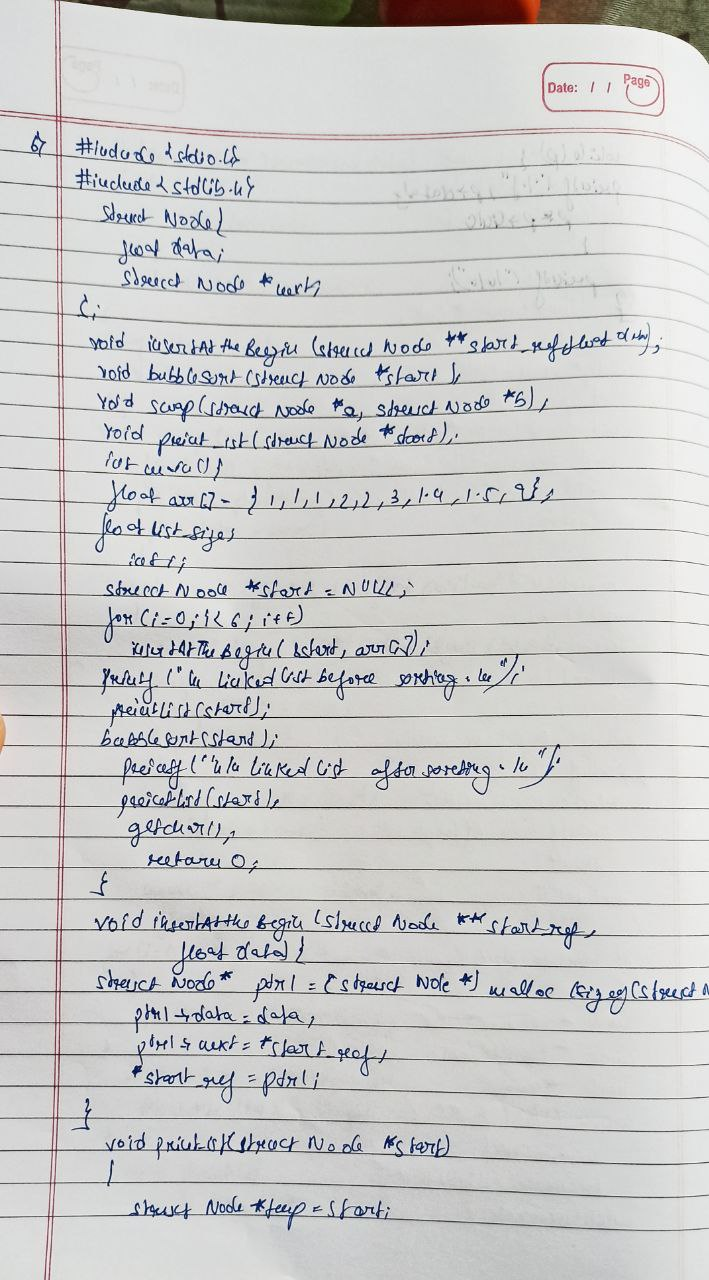 Date: / / Page
6)
#include <stdio.h>
#include <stdlib.h>
struct Node{
float data;
struct Node *next;
};
void insertAt the Begin (struct Node **start_ref, float data);
void bubblesort (struct Node *start);
void swap (struct Node *a, struct Node *b);
void print_ist (struct Node *start);
int main(){
float arr[] = {1,1,1,2,2,3,1.4,1.5,9};
float list_size;
int i;
struct Node *start = NULL;
for (i=0; i<6; i++)
insertAtTheBegin (&start, arr[i]);
printf ("\n Linked list before sorting. \n");
printlist (start);
bubblesort (start);
printf ("\n\n Linked list after sorting. \n");
printlist (start);
getchar();
return 0;
}
void insertAtthe Begin (struct Node **start_ref,
float data) {
struct Node* ptr1 = (struct Node *) malloc (sizeof (struct N
ptr1→data = data;
ptr1→next = *start_ref;
*start_ref = ptr1;
}
void printlist (struct Node *start)
{
struct Node *temp = start;